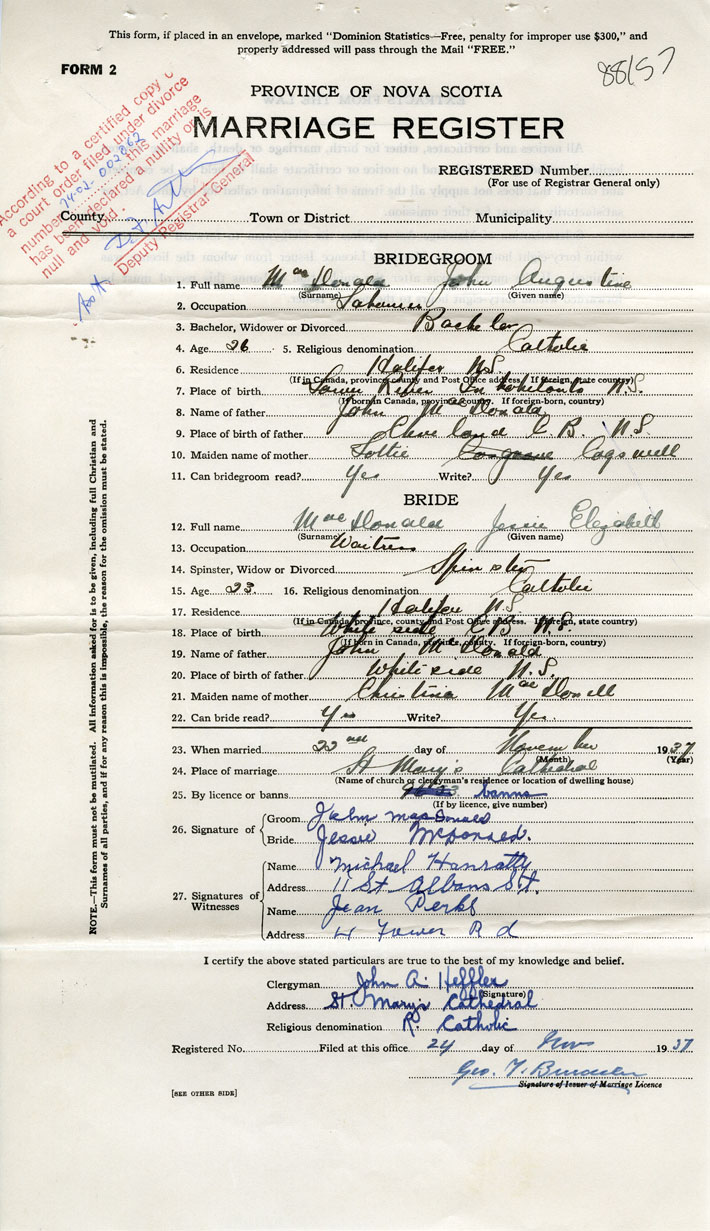 This form, if placed in an envelope, marked "Dominion Statistics—Free, penalty for improper use $300," and
properly addressed will pass through the Mail "FREE."
FORM 2
88157
PROVINCE OF NOVA SCOTIA
MARRIAGE REGISTER
According to a certified copy
a court order filed under divorce
number 74-02-002862 this marriage
has been declared a nullity or is
null and void.
Deputy Registrar General
REGISTERED Number
(For use of Registrar General only)
County Town or District Municipality
BRIDEGROOM
1. Full name MacDonald John Augustine
(Surname) (Given name)
2. Occupation Labourer
3. Bachelor, Widower or Divorced Bachelor
4. Age 26 5. Religious denomination Catholic
6. Residence Halifax N.S.
(If in Canada, province, county and Post Office address. If foreign, state country)
7. Place of birth Lower River Inhabitants N.S.
(If born in Canada, province, county. If foreign-born, country)
8. Name of father John MacDonald
9. Place of birth of father Cleveland C.B. N.S.
10. Maiden name of mother Lottie Cosgrove Cogswell
11. Can bridegroom read? Yes Write? Yes
BRIDE
12. Full name MacDonald Jessie Elizabeth
(Surname) (Given name)
13. Occupation Waitress
14. Spinster, Widow or Divorced Spinster
15. Age 23 16. Religious denomination Catholic
17. Residence Halifax N.S.
(If in Canada, province, county and Post Office address. If foreign, state country)
18. Place of birth White side C.B. N.S.
(If born in Canada, province, county. If foreign-born, country)
19. Name of father John MacDonald
20. Place of birth of father White side N.S.
21. Maiden name of mother Christina MacDonell
22. Can bride read? Yes Write? Yes.
23. When married 22nd day of November 1937
(Month) (Year)
24. Place of marriage St Mary's Cathedral
(Name of church or clergyman's residence or location of dwelling house)
25. By licence or banns banns
(If by licence, give number)
26. Signature of Groom John MacDonald
Bride Jessie McDonald.
27. Signatures of Witnesses Name Michael Hanratty
Address 11 St Albans St.
Name Jean Perks
Address 4 Tower Rd
I certify the above stated particulars are true to the best of my knowledge and belief.
Clergyman John A. Heffler
(Signature)
Address St. Mary's Cathedral
Religious denomination R. Catholic
Registered No. Filed at this office 24 day of Nov 1937
Geo. T.
Signature of Issuer of Marriage Licence
[SEE OTHER SIDE]
NOTE.—This form must not be mutilated. All information asked for is to be given, including full Christian and
Surnames of all parties, and if for any reason this is impossible, the reason for the omission must be stated.